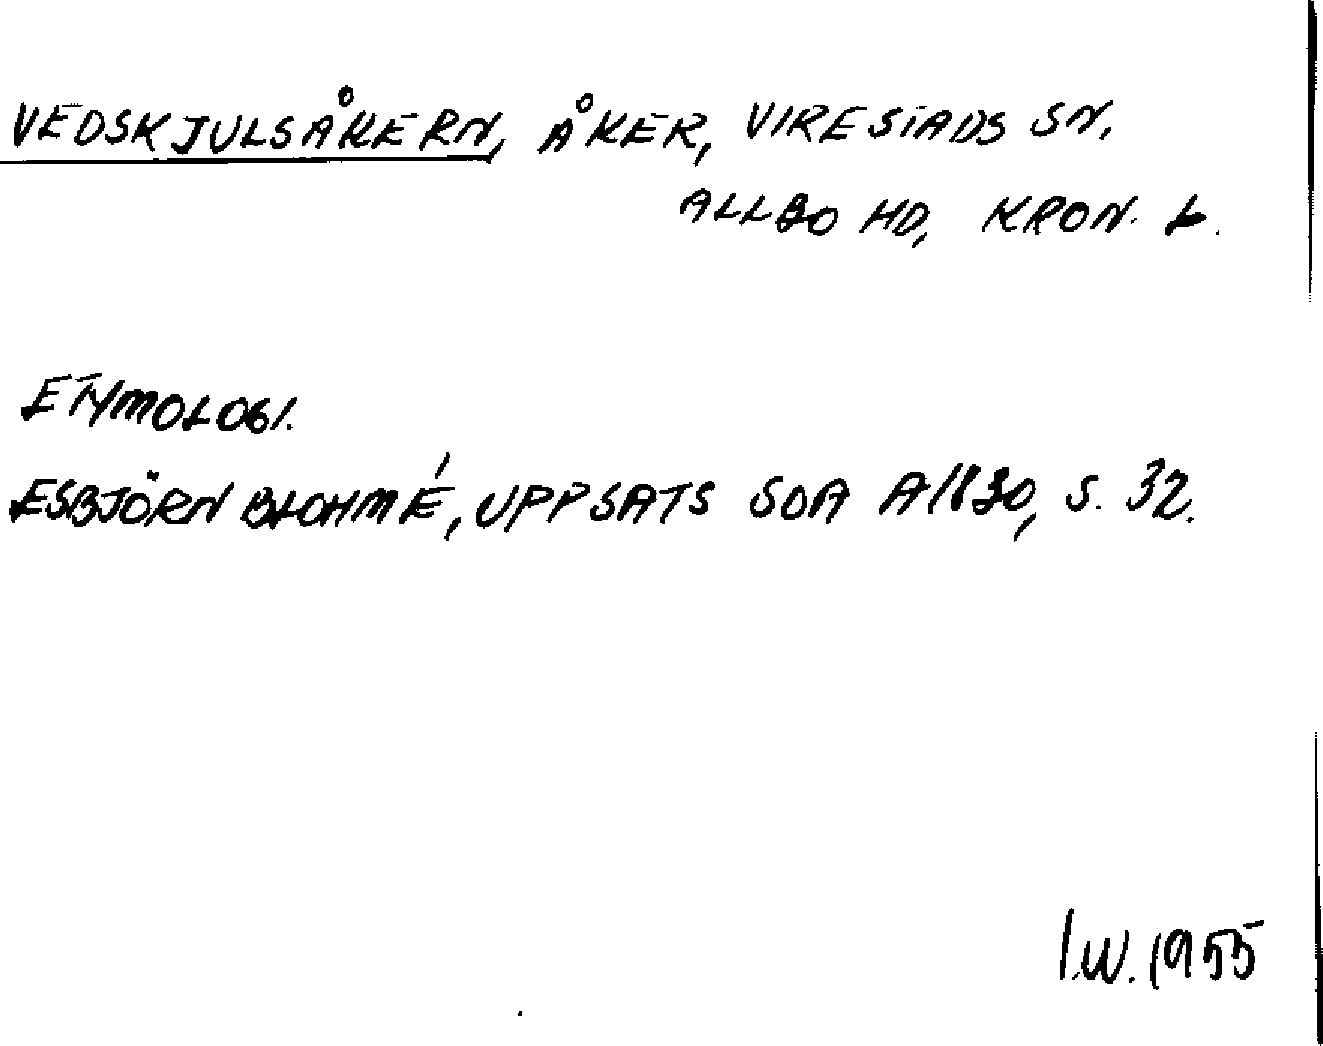 VEDSKJULSÅKERN, ÅKER, VIRESTADS SN.
ALLBO HD, KRON. L.
ETYMOLOGI.
ESBJÖRN BLOHMÉ, UPPSATS SOA A1830, S. 32.
I.W. 1955